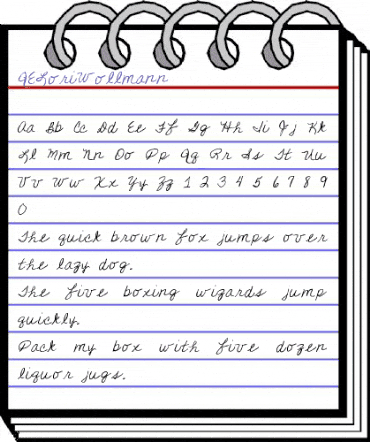 AELoriWollmann
Aa Bb Cc Dd Ee Ff Gg Hh Ii Jj Kk
Ll Mm Nn Oo Pp Qq Rr Ss Tt Uu
Vv Ww Xx Yy Zz 1 2 3 4 5 6 7 8 9
0
The quick brown fox jumps over
the lazy dog.
The five boxing wizards jump
quickly.
Pack my box with five dozen
liquor jugs.